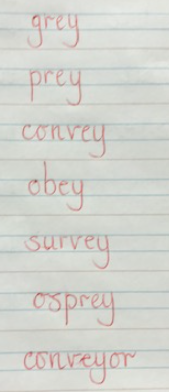 grey
prey
convey
obey
survey
osprey
conveyor